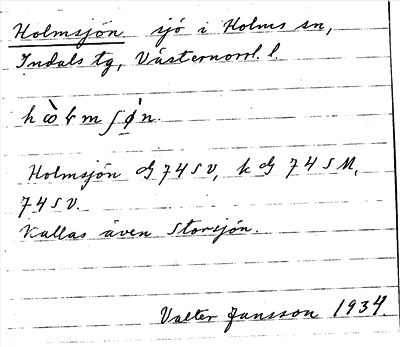 Holmsjön sjö i Holms sn,
Indals tg, Västernorrl. l.
Holmsjön G 74 SV, k G 74 SM,
74 SV.
Kallas även Storsjön.
Valter Jansson 1934.